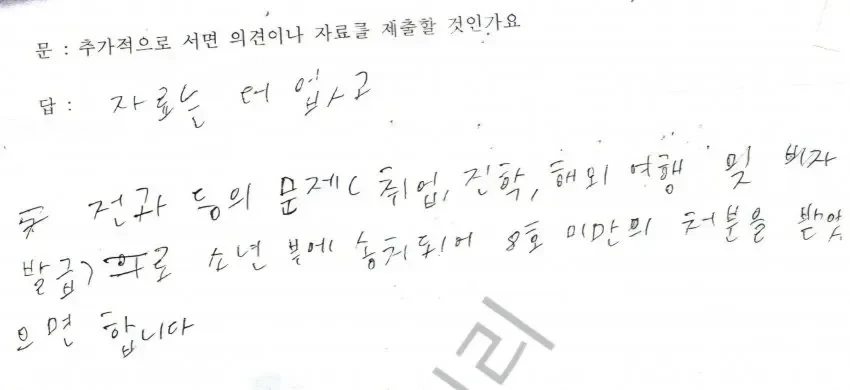 문 : 추가적으로 서면 의견이나 자료를 제출할 것인가요
답 : 자료는 더 없고
전과 등의 문제( 취업, 진학, 해외 여행 및 비자
발급)로 소년 부에 송치되어 8호 미만의 처분을 받았
으면 합니다
리